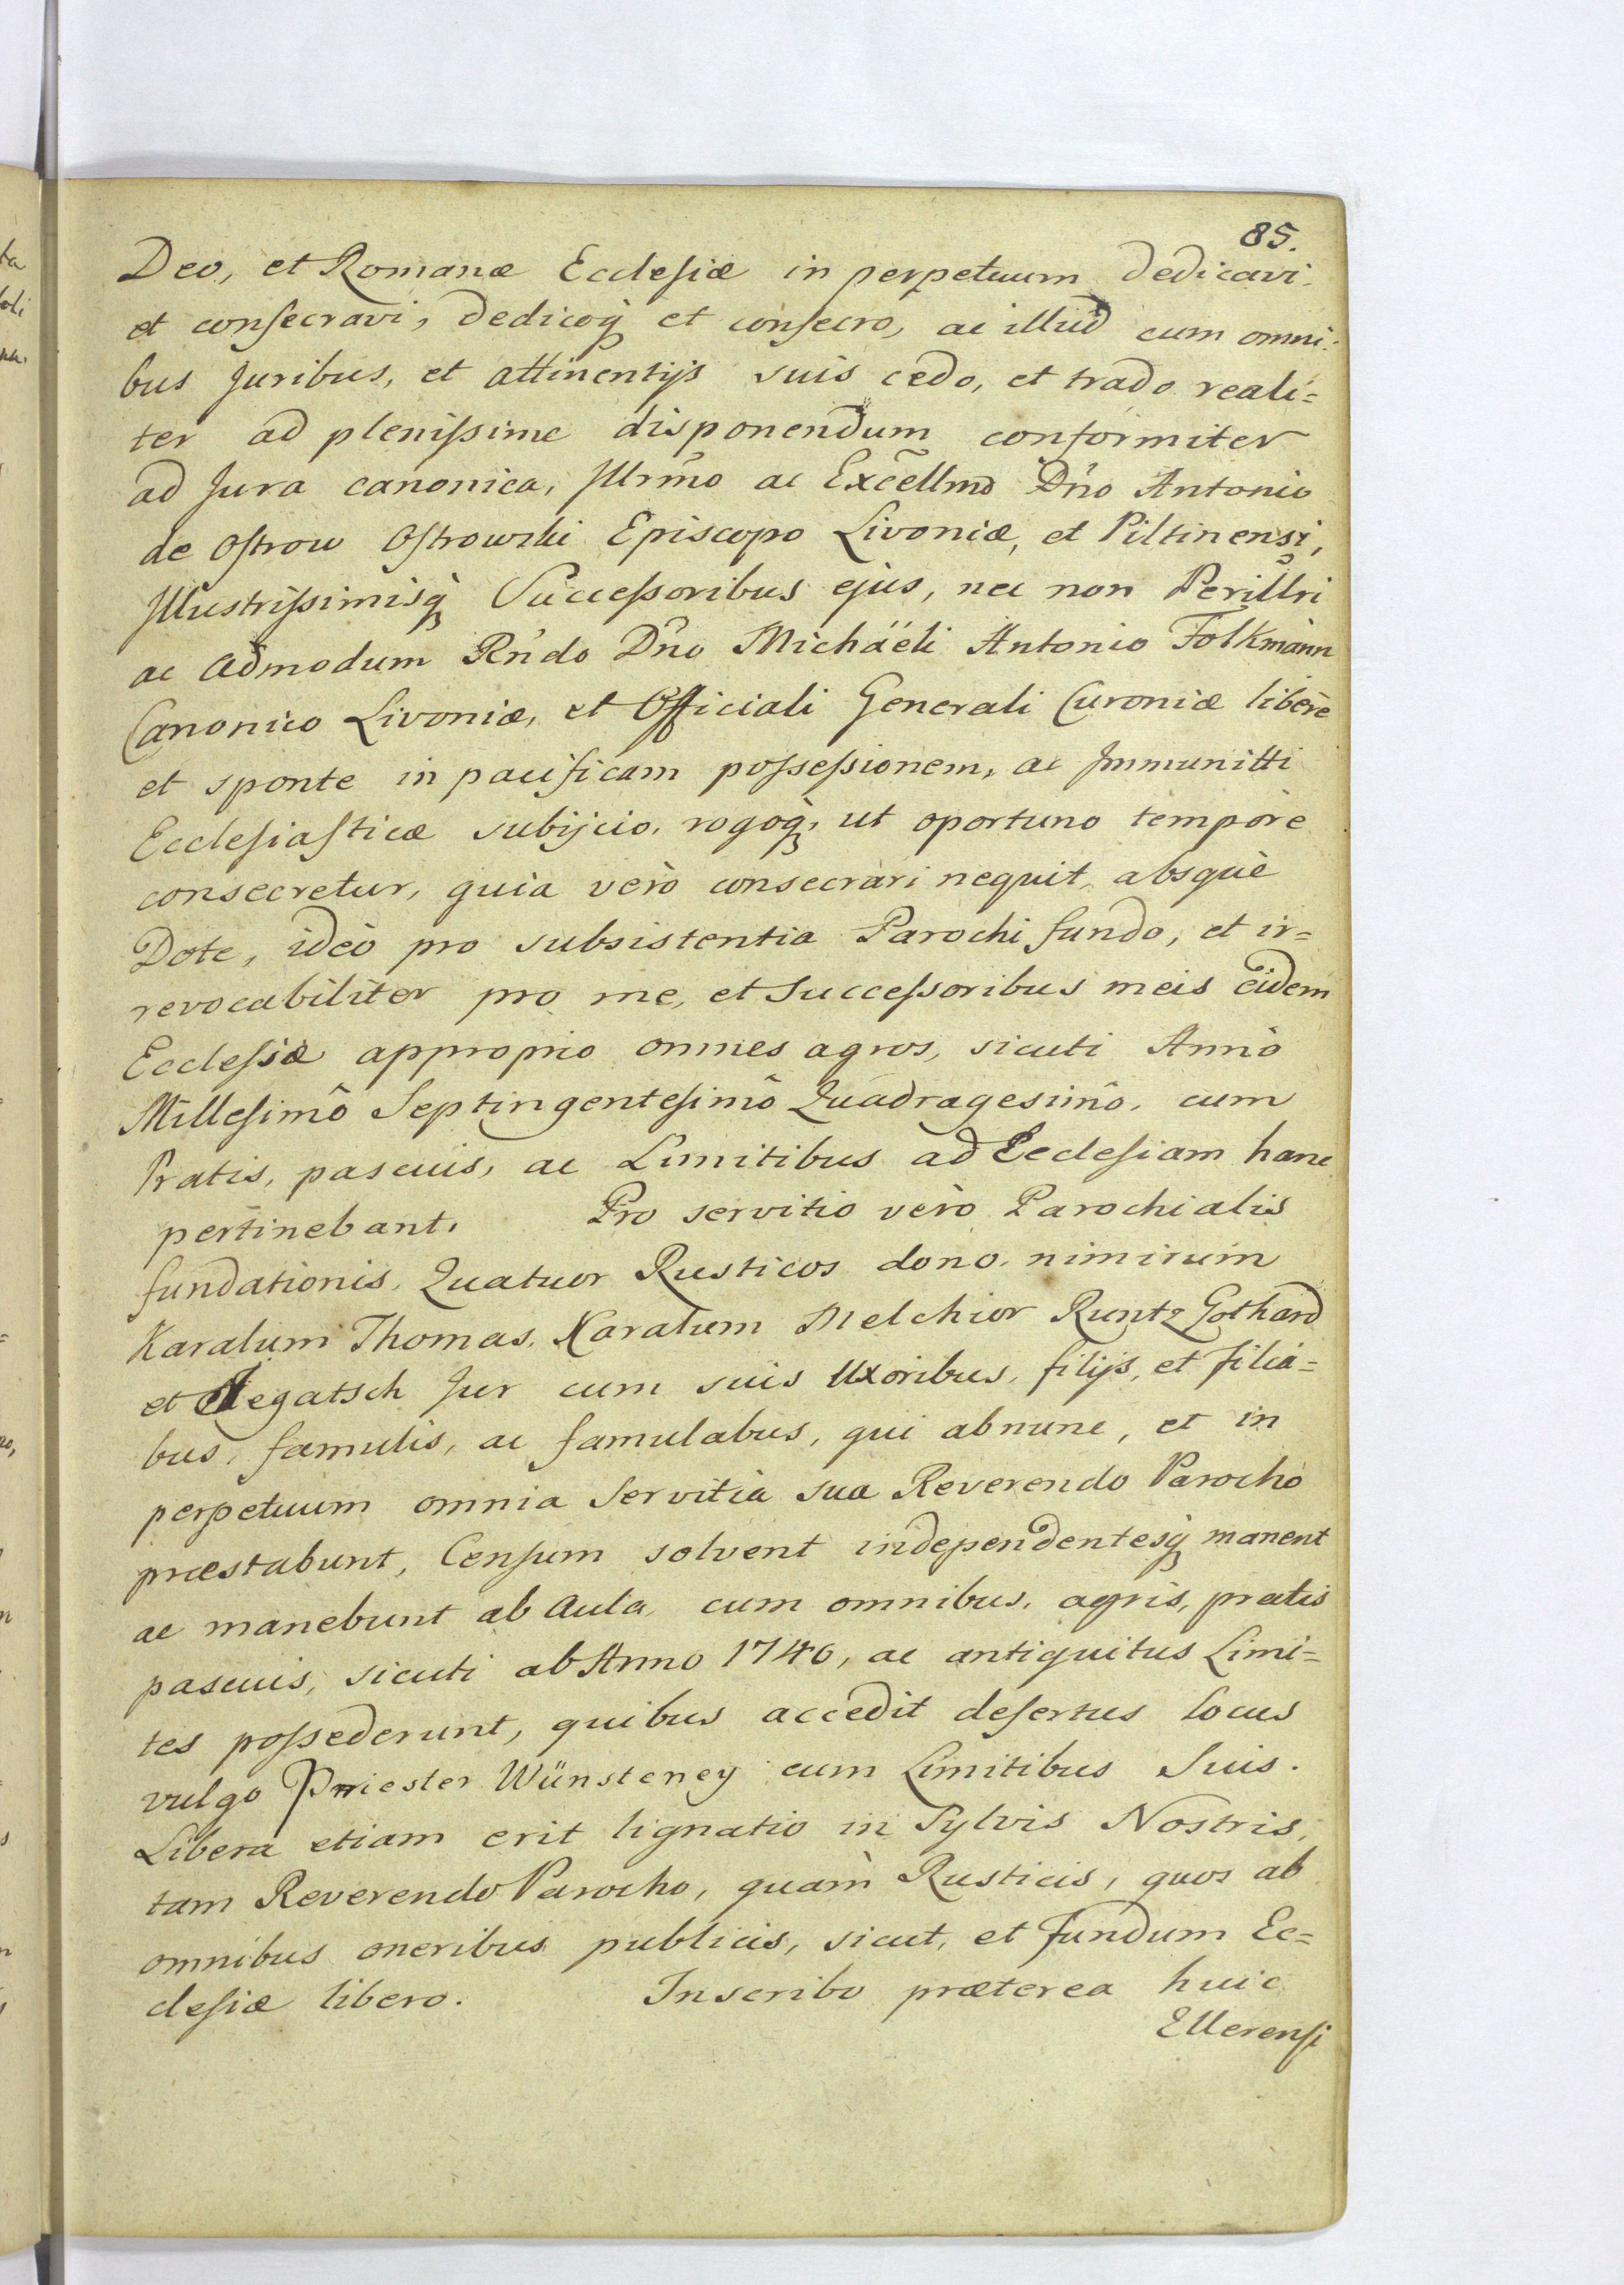 85.
Deo, et Romanæ Ecclesiæ in perpetuum dedicavi
et consecravi, dedicoq; et consecro, ac illud cum omni:
bus Juribus, et attinentijs suis cedo, et trado reali=
ter ad plenissime disponendum conformiter
ad Jura canonica, Illrm̃o ac Exc̃ellmo Dño Antonio
de Ostrow Ostrowski Episcopo Livoniæ, et Piltinensi,
Illustrissimisq; Successoribus ejus, nec non Perillri
ac Admodum Rńdo Dńo Michaëli Antonio Folkmann
Canonico Livoniæ, et Officiali Generali Curoniæ liberè
et sponte in pacificam possessionem, ac Immunitti
Ecclesiasticæ subijcio, rogoq; ut oportuno tempore
consecretur, quia verò consecrari nequit, absquè
Dote, ideò pro subsistentia Parochi fundo, et ir=
revocabiliter pro me, et Successoribus meis eidem
Ecclesiæ approprio omnes agros, sicuti Annô
Millesimô Septingentesimô Quadragesimô, cum
Pratis, pascuis, ac Limitibus ad Ecclesiam hanc
pertinebant. Pro servitio verò Parochialis
fundationis, Quatuor Rusticos dono. nimirum
Karalum Thomas, Karalum Melchior Runtz Gothard
et Jegatsch Jur cum suis Uxoribus, filijs, et filia=
bus, famulis, ac famulabus, qui abnunc, et in
perpetuum omnia Servitia sua Reverendo Parocho
præstabunt, Censum solvent independentesq; manent
ac manebunt ab Aula, cum omnibus, agris, pratis
pascuis, sicuti ab Anno 1740, ac antiquitus Limi=
tes possederunt, quibus accedit desertus locus
vulgo Priester Wünsteney cum Limitibus Suis.
Libera etiam erit lignatio in Sylvis Nostris,
tam Reverendo Parocho, quàm Rusticis, quos ab
omnibus oneribus publicis, sicut, et Fundum Ec=
clesiæ libero. Inscribo præterea huic
Ellerensi